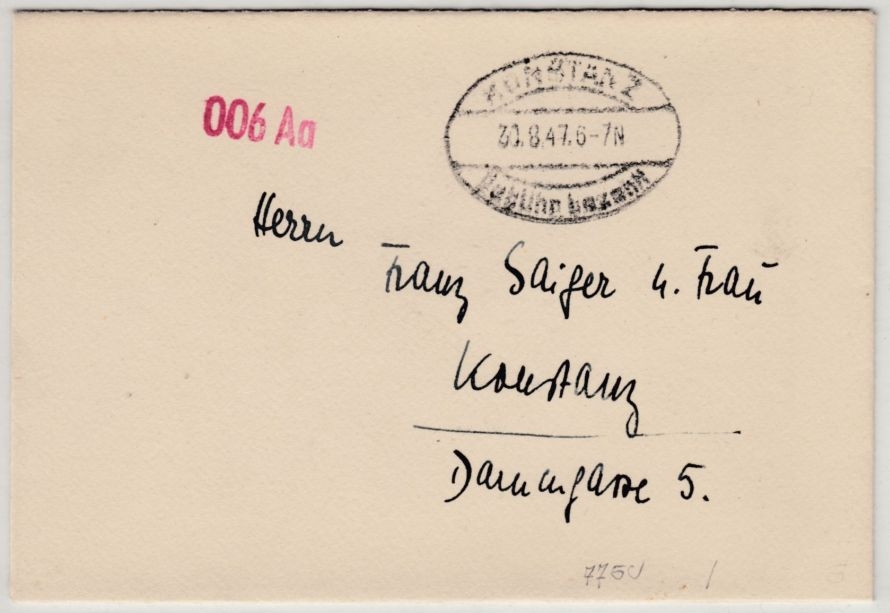 KONSTANZ
30.8.47.6-7N
Gebühr bezahlt
006 Aa
Herrn
Franz Saiger u. Frau
Konstanz
Dammgasse 5.